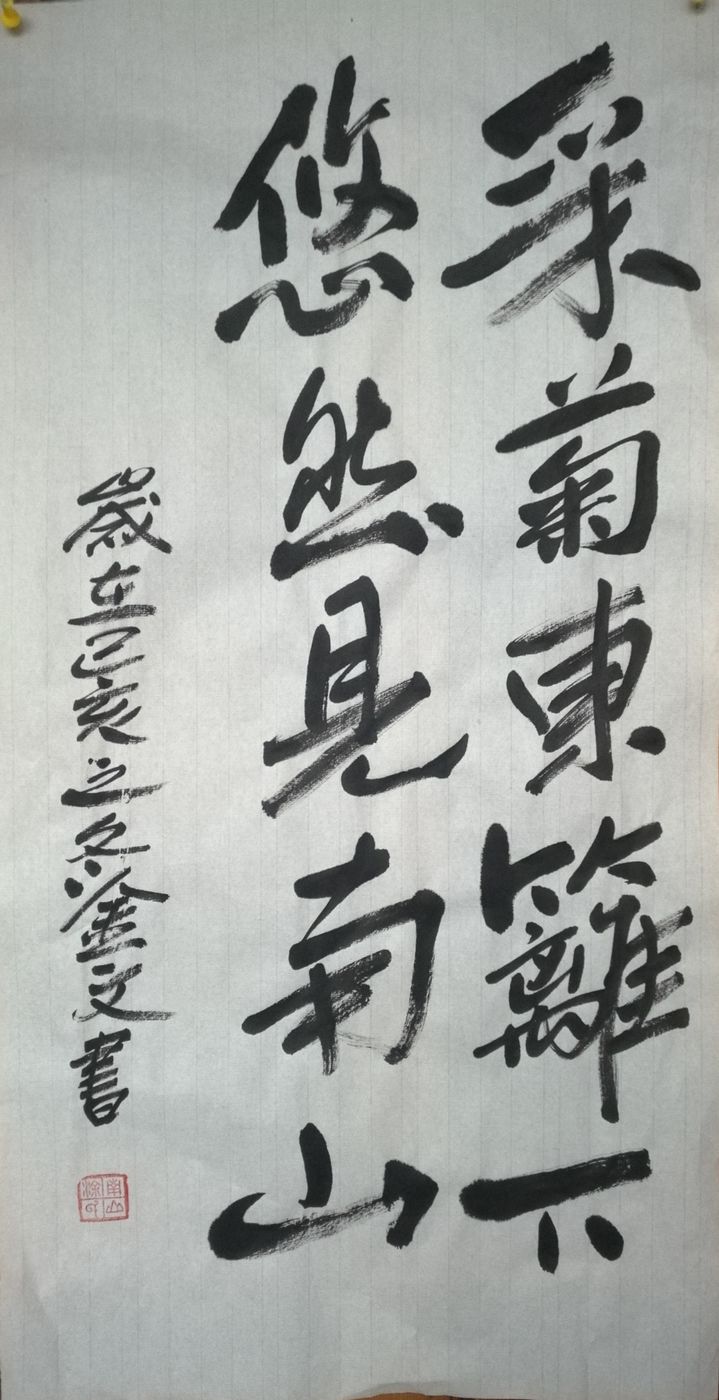 采菊東籬下
悠然見南山
歲在己亥之冬金文書